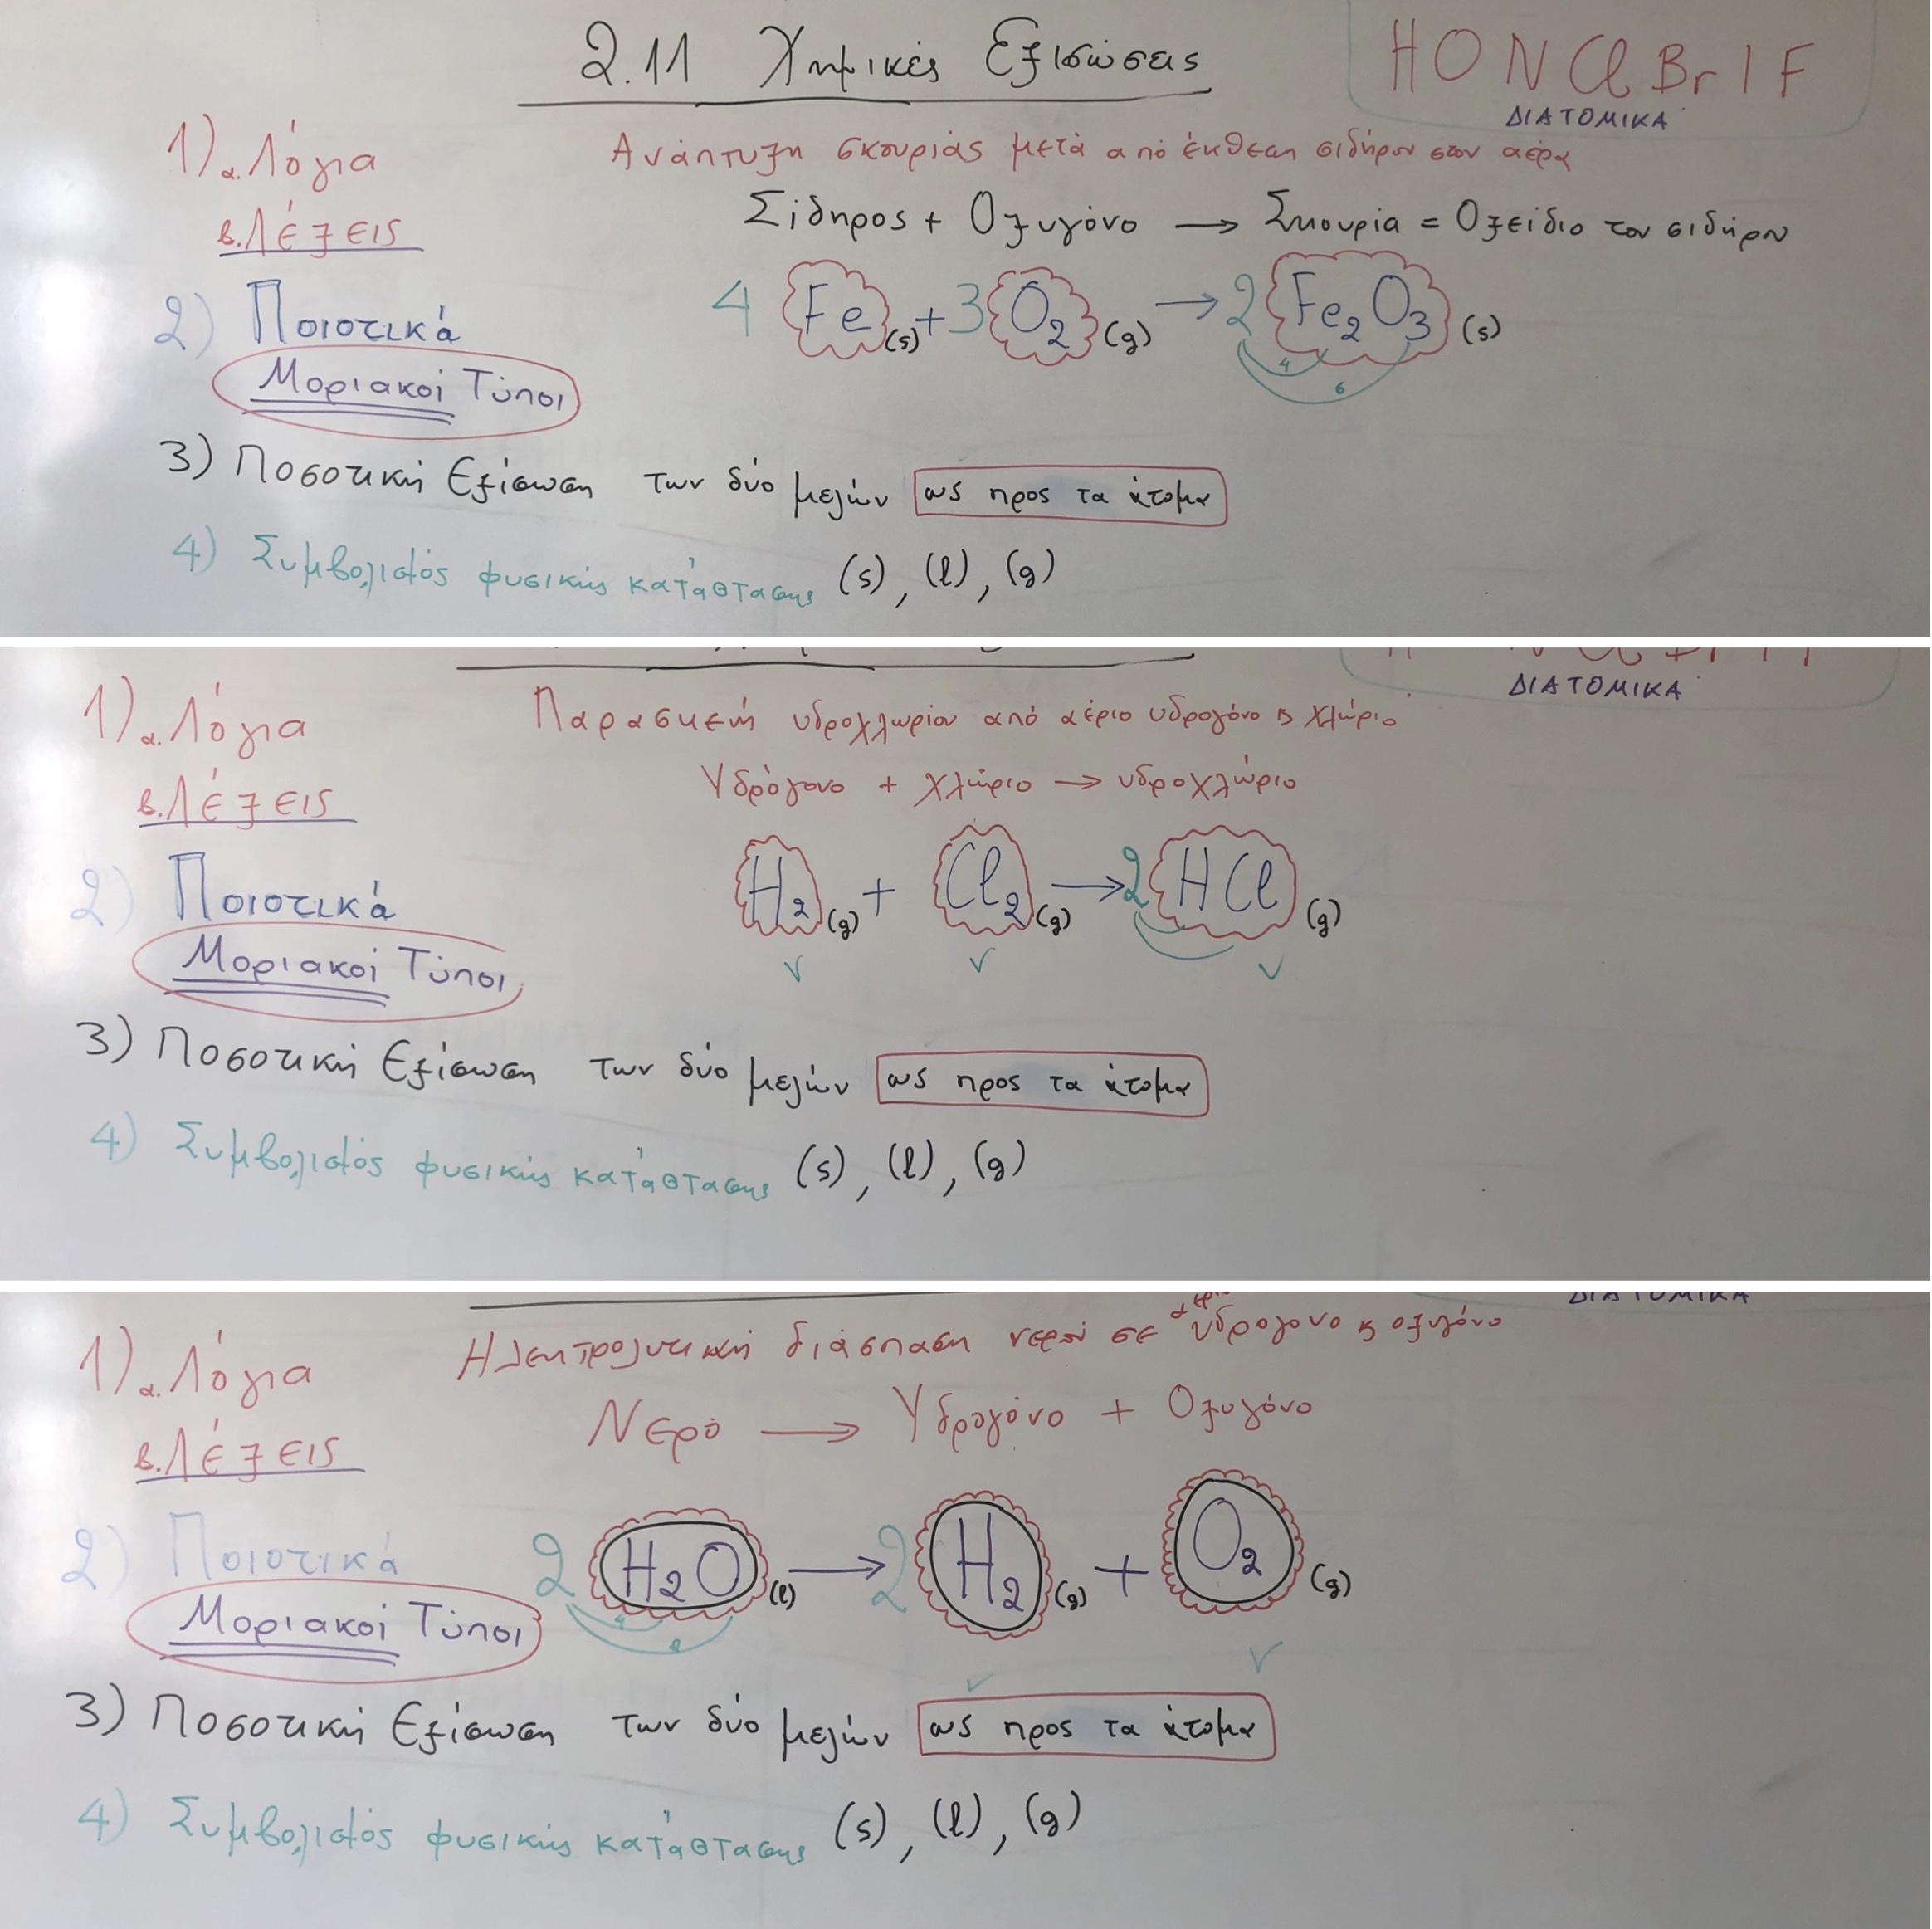 2.11 Χημικές Εξισώσεις
H O N Cl Br I F
ΔΙΑΤΟΜΙΚΑ
1) α. Λόγια
Ανάπτυξη σκουριάς μετά από έκθεση σιδήρου στον αέρα
β. Λέξεις
Σίδηρος + Οξυγόνο → Σκουρία = Οξείδιο του σιδήρου
2) Ποιοτικά
4 Fe(s) + 3 O₂(g) → 2 Fe₂O₃(s)
4
6
Μοριακοί Τύποι
3) Ποσοτική Εξίσωση των δύο μελών ως προς τα άτομα
4) Συμβολισμός φυσικής κατάστασης (s), (l), (g)
ΔΙΑΤΟΜΙΚΑ
1) α. Λόγια
Παρασκευή υδροχλωρίου από αέριο υδρογόνο & χλώριο
β. Λέξεις
Υδρόγονο + Χλώριο → υδροχλώριο
2) Ποιοτικά
H₂(g) + Cl₂(g) → 2 HCl(g)
✓ ✓ ✓
Μοριακοί Τύποι
3) Ποσοτική Εξίσωση των δύο μελών ως προς τα άτομα
4) Συμβολισμός φυσικής κατάστασης (s), (l), (g)
ΔΙΑΤΟΜΙΚΑ
1) α. Λόγια
Ηλεκτρολυτική διάσπαση νερού σε υδρογονο & οξυγόνο
β. Λέξεις
Νερό → Υδρογόνο + Οξυγόνο
2) Ποιοτικά
2 H₂O(l) → 2 H₂(g) + O₂(g)
4
2
✓ ✓
Μοριακοί Τύποι
3) Ποσοτική Εξίσωση των δύο μελών ως προς τα άτομα
4) Συμβολισμός φυσικής κατάστασης (s), (l), (g)